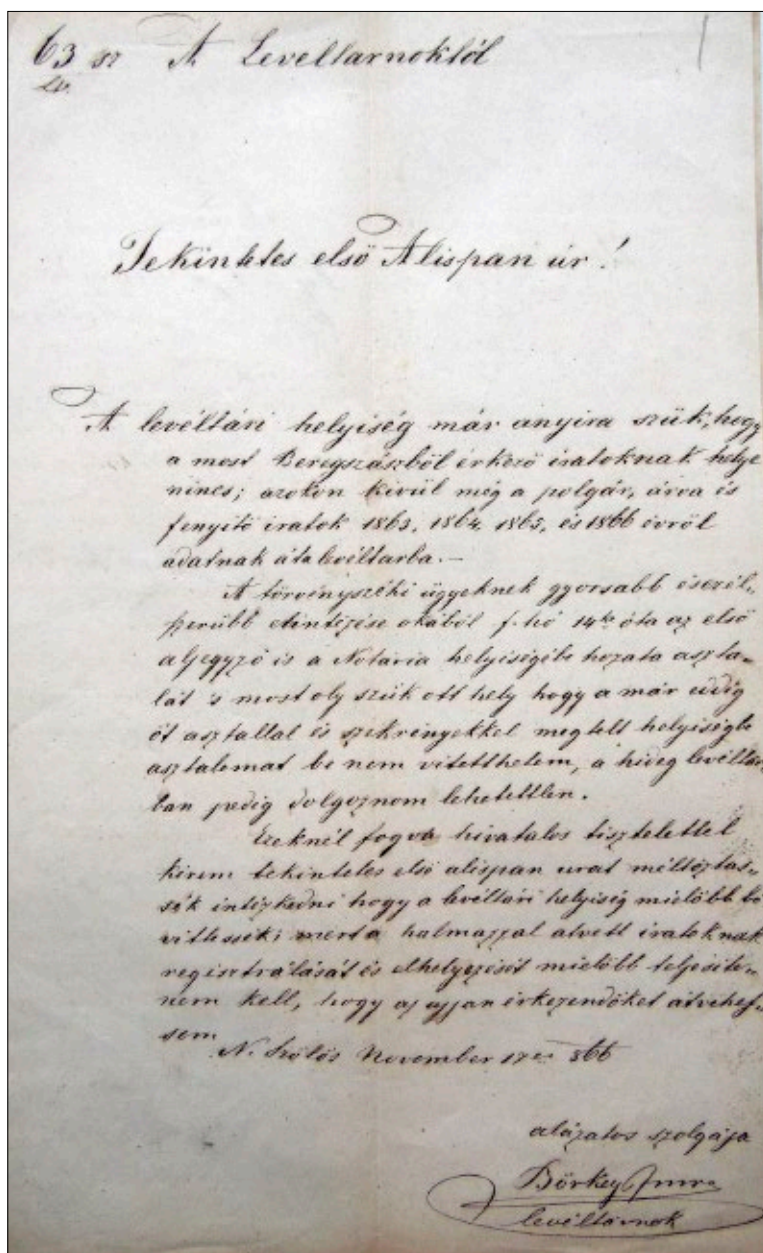 63 sz A Levéltarnoktól
Lv.
Tekintetes első Alispan úr!
A levéltári helyiség már anyira szük, hogy
a most Beregszászból érkező iratoknak helye
nincs; azokon kivül még a polgár, árva és
fenyitő iratok 1863, 1864, 1865, és 1866 évről
adatnak át a levéltarba. –
A törvényszéki ügyeknek gyorsabb és czél-
szerübb elintézése okából f. hó 14te óta az első
aljegyző is a Notaria helyiségébe hozata aszta-
lát 's most oly szük ott hely hogy a már eddig
öt asztallal és szekrényekkel megtelt helyiségbe
asztalomat be nem vitetthetem, a hideg levéltár-
ban pedig dolgoznom lehetetlen.
Ezeknél fogva hivatalos tisztelettel
kérem tekintetes első alispan urat méltóztas-
sék intézkedni hogy a levéltári helyiség mielőbb bő
vittessék; mert a halmazzal átvett iratoknak
registrálását és elhelyezését mielőbb teljesite-
nem kell, hogy az ujjan érkezendőket átvehes-
sem
N. Szőlős November 17én 866
alázatos szolgája
Börkey Imre
levéltárnok